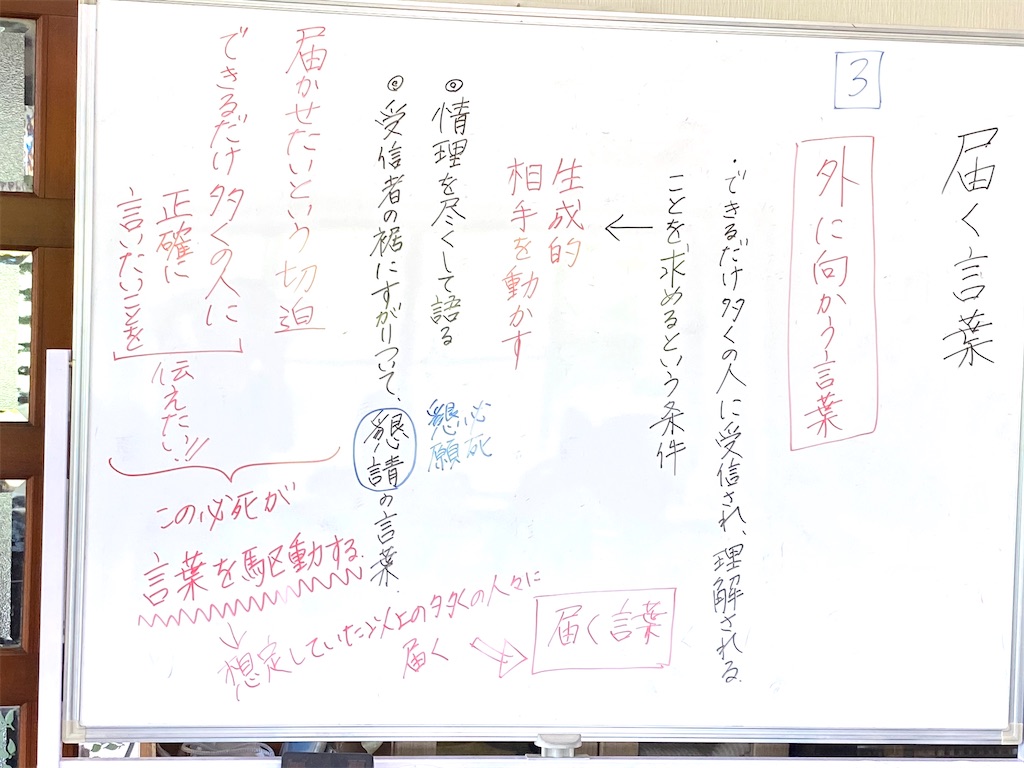 届く言葉
3
外に向かう言葉
・できるだけ多くの人に受信され、理解される
ことを求めるという条件
←
生成的
相手を動かす
◎情理を尽くして語る
◎受信者の裾にすがりついて、懇請の言葉.
必死
懇願
届かせたいという切迫
できるだけ多くの人に
正確に
言いたいことを
伝えたい!!
この必死が
言葉を駆動する.
↓
想定していた以上の多くの人々に
届く
⇒
届く言葉